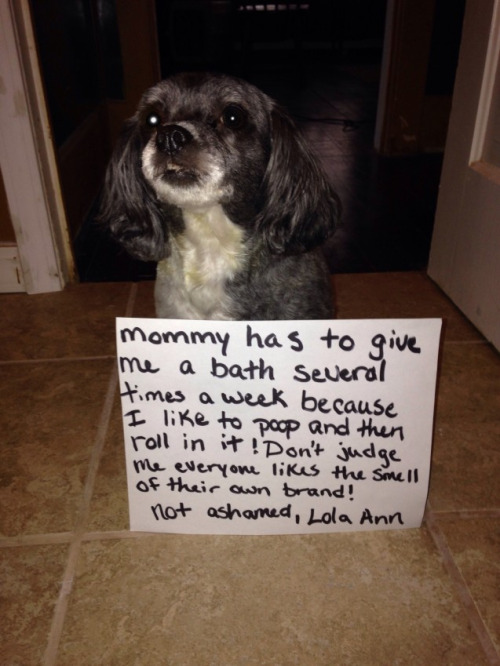 mommy has to give
me a bath several
times a week because
I like to poop and then
roll in it! Don't judge
me everyone likes the smell
of their own brand!
not ashamed, Lola Ann